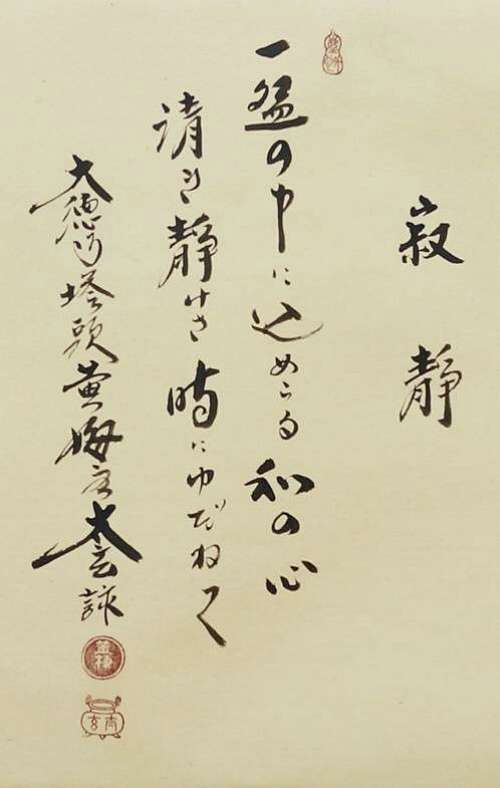 寂静
一盌の中に込めらる和の心
清き静けさ時にゆだねて
大徳寺塔頭黄梅院太玄詠
黄梅
太玄